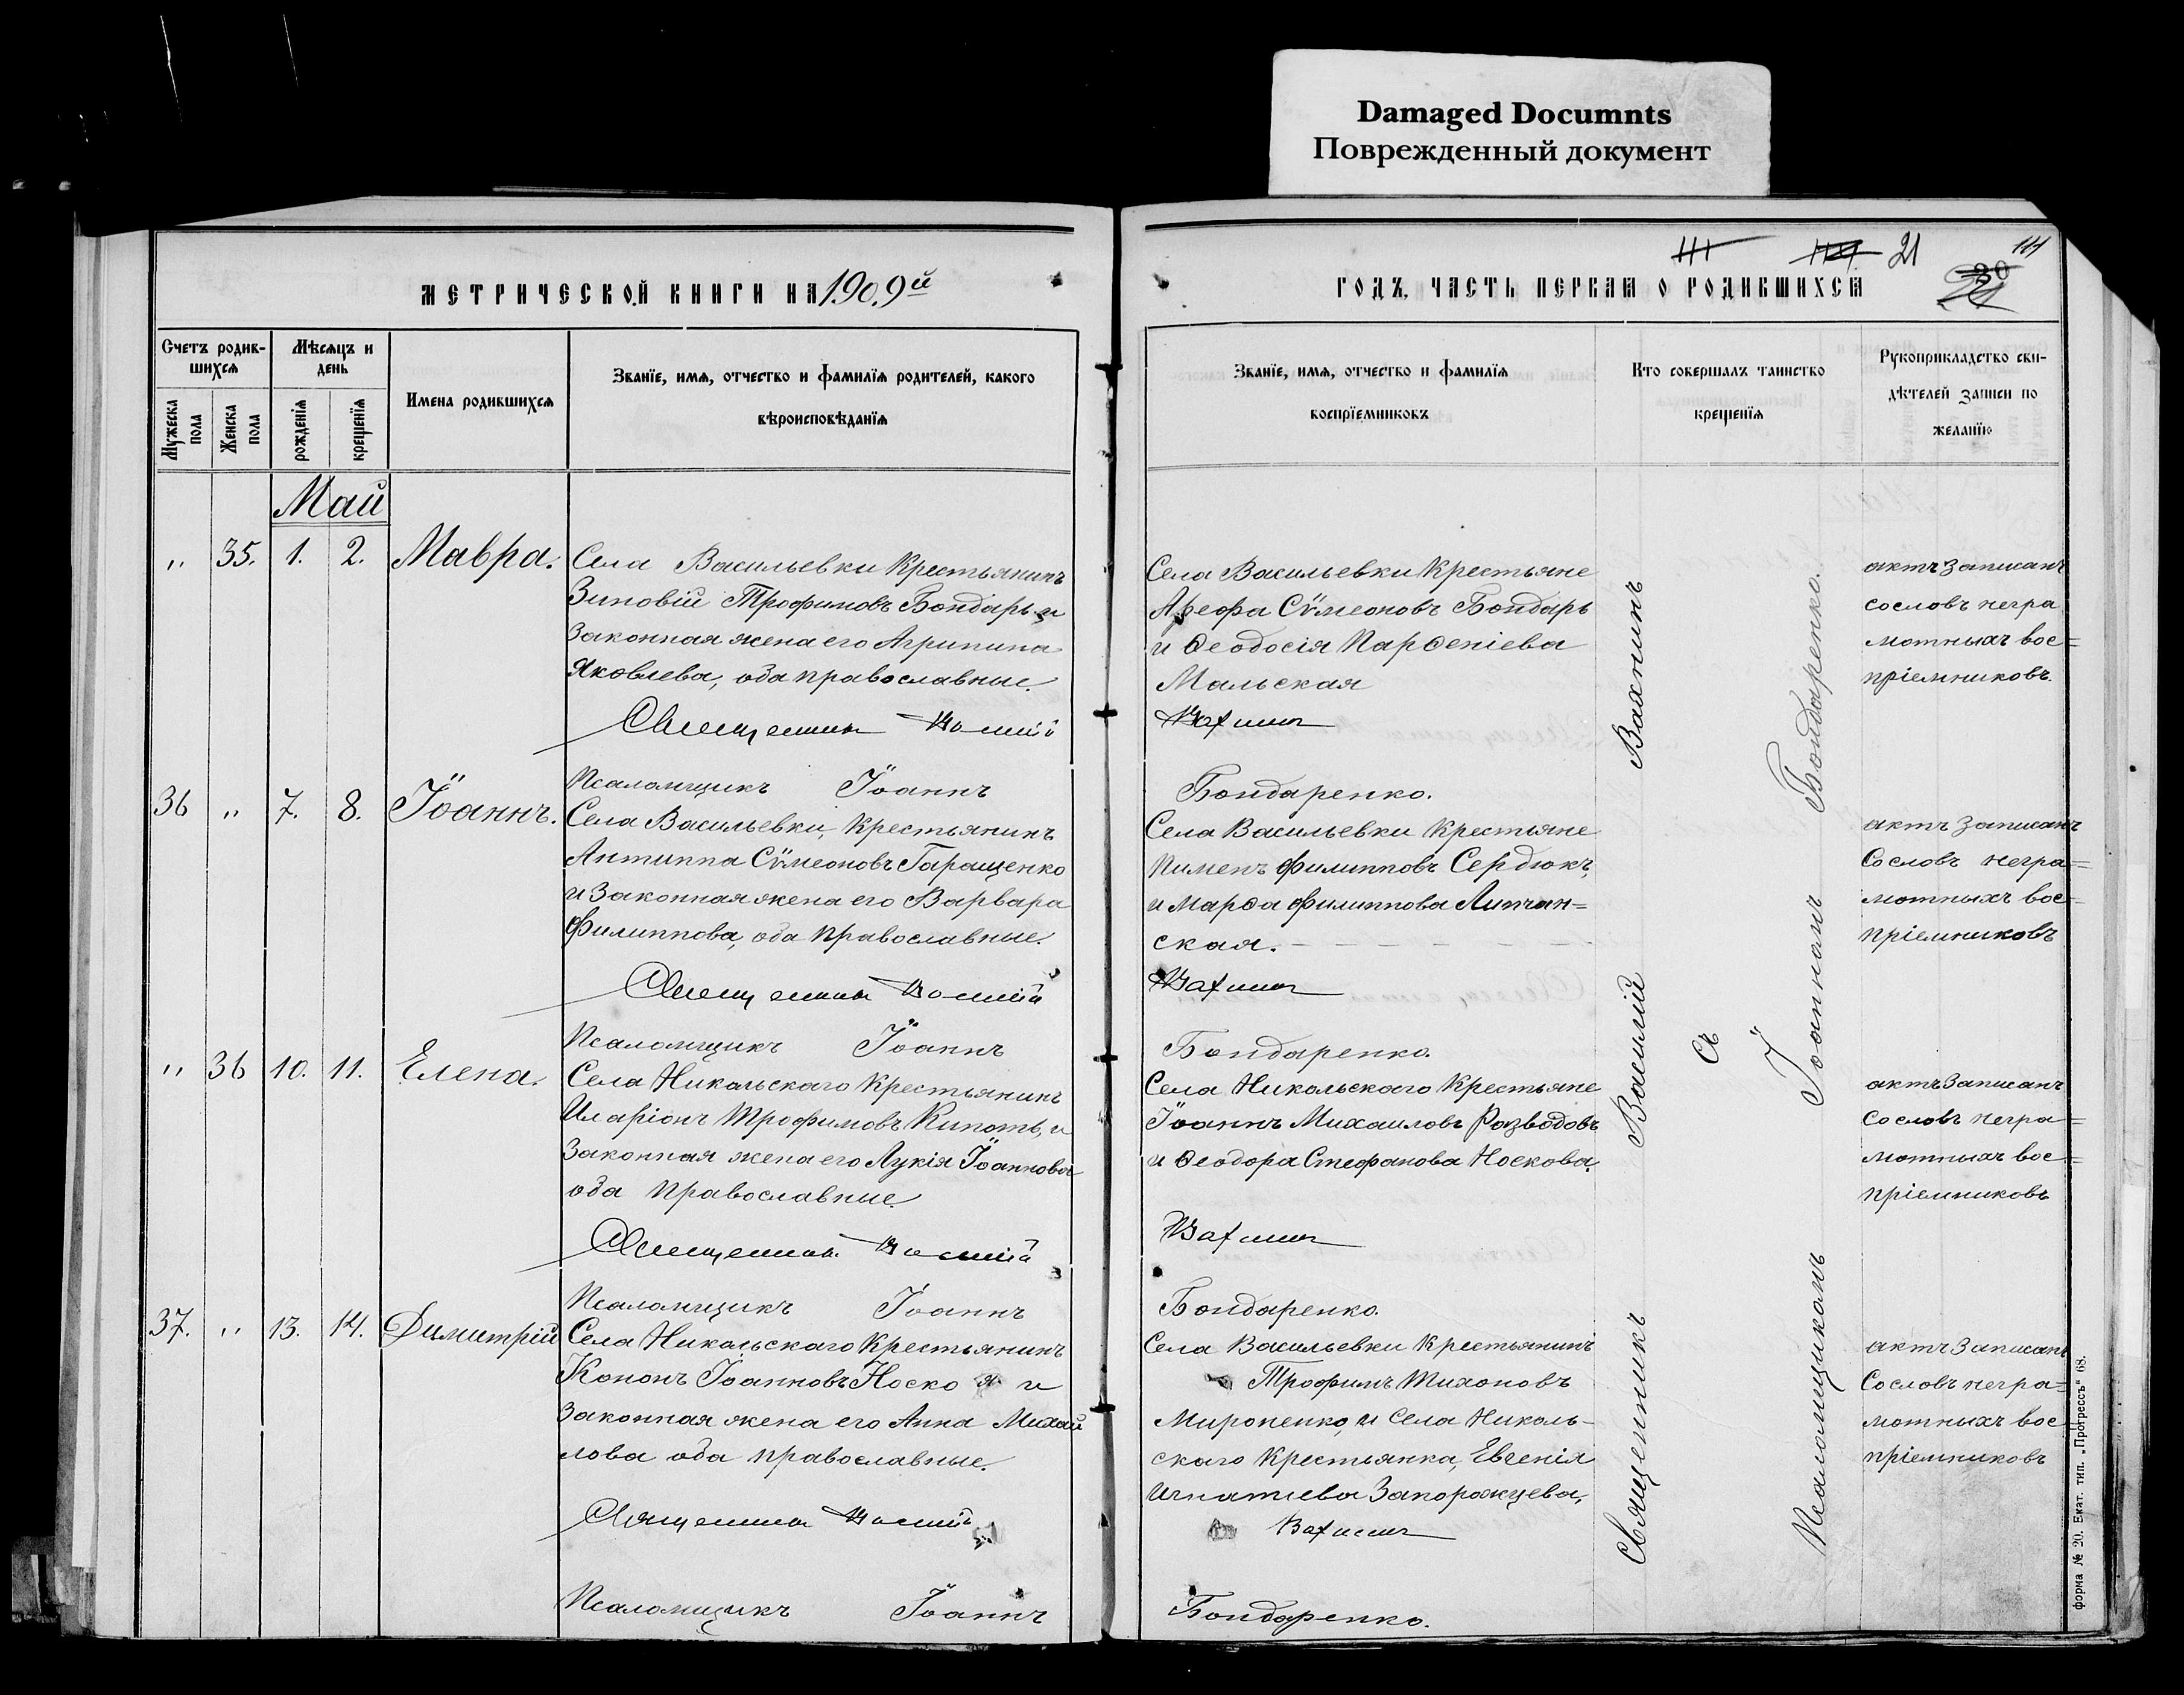 Damaged Documnts
Поврежденный документ
МЕТРИЧЕСКОЙ КНИГИ НА 1909й
Счетъ родив-
шихся
Мѣсяцъ и
день
Мужеска
пола
Женска
пола
рожденія
крещенія
Имена родившихся
Званїе, имя, отчество и фамилїя родителей, какого
вѣроисповѣданїя
Май
„ 35. 1. 2. Мавра.
Села Васильевки Крестьянинъ
Зиновій Трофимовъ Бондарь и
Законная жена его Агрипина
Яковлева, оба православные.
Священникъ Василій
Псаломщикъ Іоаннъ
36 „ 7. 8. Іоаннъ.
Села Васильевки, Крестьянинъ
Антиппа Сѵмеоновъ Гаращенко
и Законная жена его Варвара
Филиппова, оба православные.
Священникъ Василій
Псаломщикъ Іоаннъ
„ 36 10. 11. Елена.
Села Никольскаго Крестьянинъ
Иларіонъ Трофимовъ Кипоть, и
Законная жена его Лукія Іоаннова
оба православные.
Священникъ Василій
Псаломщикъ Іоаннъ
37. „ 13. 14. Димитрій
Села Никольскаго Крестьянинъ
Кононъ Іоанновъ Носко и
Законная жена его Анна Михаи
лова оба православные.
Священникъ Василій
Псаломщикъ Іоаннъ
111 21 111
30
21
ГОДЪ, ЧАСТЬ ПЕРВАЯ О РОДИВШИХСЯ
Званїе, имя, отчество и фамилїя
воспрїемниковъ
Кто совершалъ таинство
крещенїя
Рукоприкладство сви-
дѣтелей записи по
желанїю
Села Васильевки Крестьяне
Арефа Сѵмеоновъ Бондарь
и Ѳеодосія Парѳеніева
Мальская
Вахнинъ
Бондаренко.
Села Васильевки Крестьяне
Пименъ Филипповъ Сердюкъ,
и Марѳа Филиппова Липчан=
ская.
Вахнинъ
Бондаренко.
Села Никольскаго Крестьяне
Іоаннъ Михаиловъ Розводовъ
и Ѳеодора Стефанова Носкова.
Вахнинъ
Бондаренко.
Села Васильевки Крестьянинъ
Трофимъ Тихоновъ
Мироненко, и Села Николь-
скаго Крестьянка, Евгенія
Игнатіева Запорожцева,
Вахнинъ
Бондаренко.
Священникъ Василій Вахнинъ
съ
Псаломщикомъ Іоанномъ Бондаренко.
актъ записанъ
со словъ негра
мотныхъ вос=
пріемниковъ.
актъ записанъ
Со словъ негра=
мотныхъ вос=
пріемниковъ
актъ записанъ
Со словъ негра=
мотныхъ вос=
пріемниковъ
актъ записанъ
Со словъ негра=
мотныхъ вос=
пріемниковъ
форма № 20. Екат. тип. „Прогрессъ“ 68.